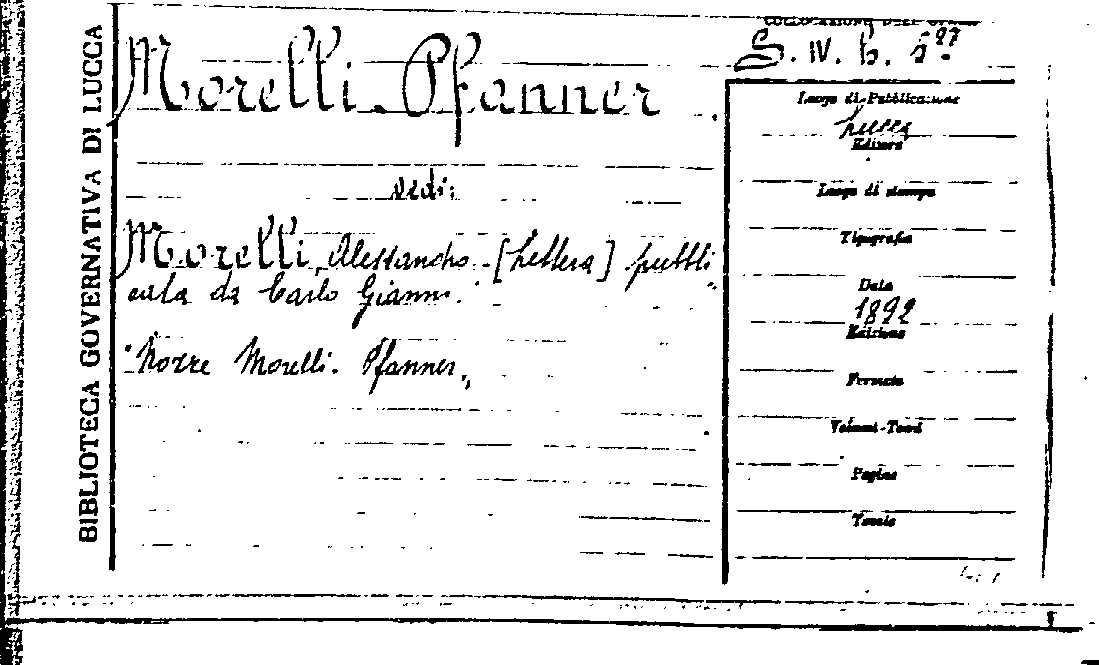 BIBLIOTECA GOVERNATIVA DI LUCCA
COLLOCAZIONE DELL'OPERA
S. IV. b. 5 27
Morelli-Pfanner
vedi:
Morelli, Alessandro. [Lettera] pubbli„
cata da Carlo Gianni.
"Nozze Morelli-Pfanner„
Luogo di Pubblicazione
Lucca
Editore
Luogo di stampa
Tipografia
Data
1892
Edizione
Formato
Volumi-Tomi
Pagine
Tavole